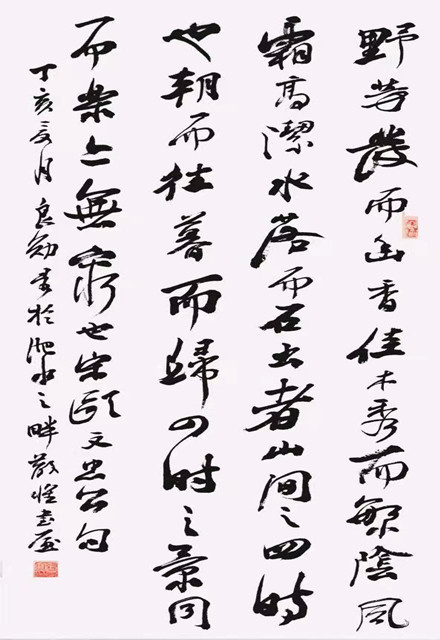 野芳發而幽香佳木秀而繁陰風
霜高潔水落而石出者山間之四時
也朝而往暮而歸四时之景同
而樂亦無窮也宋歐文忠公句
丁亥夏月良勛書於淝水之畔